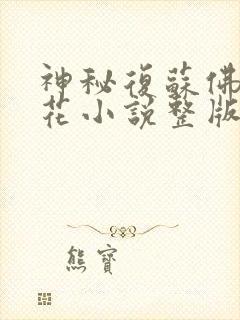 神秘復蘇佛
花小説整版
熊寶